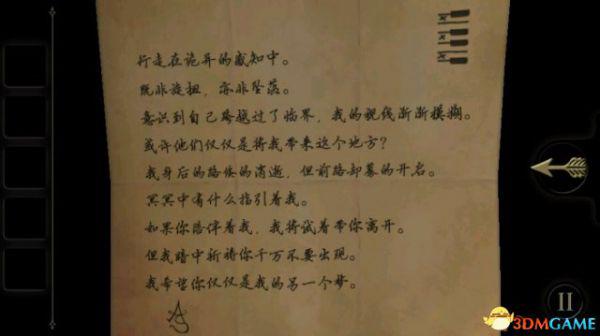 行走在诡异的感知中。
既非旋扭，亦非坠落。
意识到自己跨越过了临界，我的视线渐渐模糊。
或许他们仅仅是将我带来这个地方？
我身后的路倏的消逝，但前路却蓦的开启。
冥冥中有什么指引着我。
如果你陪伴着我，我将试着带你离开。
但我暗中祈祷你千万不要出现。
我希望你仅仅是我的另一个梦。
AS
3DMGAME